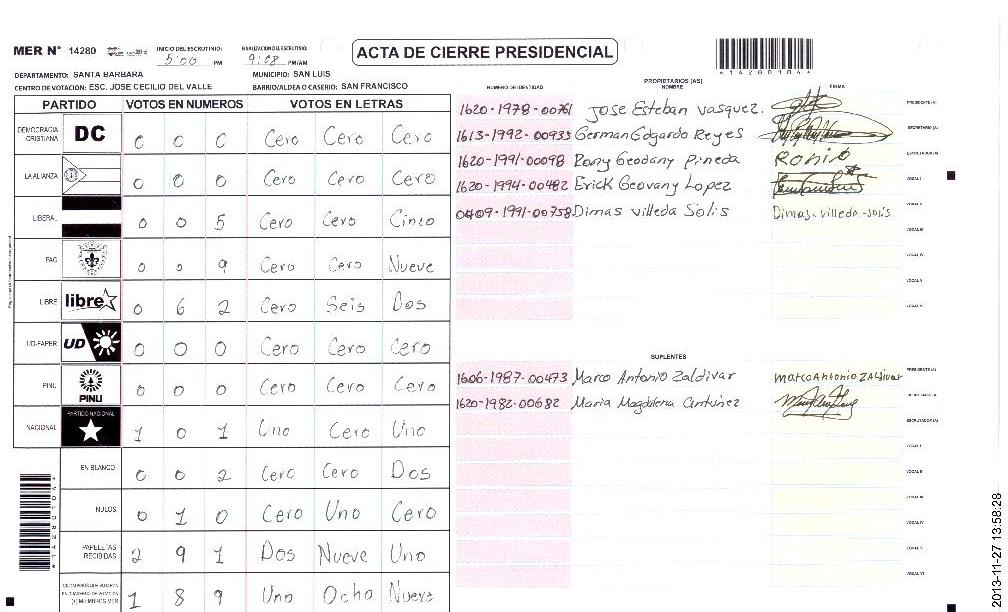 MER N° 14280
INICIO DEL ESCRUTINIO: 5:00 PM
FINALIZACION DEL ESCRUTINIO: 9:08 PM/AM
ACTA DE CIERRE PRESIDENCIAL
*14280104*
DEPARTAMENTO: SANTA BARBARA
MUNICIPIO: SAN LUIS
CENTRO DE VOTACION: ESC. JOSE CECILIO DEL VALLE
BARRIO/ALDEA O CASERIO: SAN FRANCISCO
PARTIDO VOTOS EN NUMEROS VOTOS EN LETRAS
DEMOCRACIA CRISTIANA DC 0 0 0 Cero Cero Cero
LA ALIANZA 0 0 0 Cero Cero Cero
LIBERAL 0 0 5 Cero Cero Cinco
PAC 0 0 9 Cero Cero Nueve
LIBRE libre 0 6 2 Cero Seis Dos
UD-FAPER UD 0 0 0 Cero Cero Cero
PINU PINU 0 0 0 Cero Cero Cero
NACIONAL PARTIDO NACIONAL 1 0 1 Uno Cero Uno
EN BLANCO 0 0 2 Cero Cero Dos
NULOS 0 1 0 Cero Uno Cero
PAPELETAS RECIBIDAS 2 9 1 Dos Nueve Uno
CIUDADANOS QUE VOTARON EN CUADERNO DE VOTACION (+) MIEMBROS MER 1 8 9 Uno Ocho Nueve
*14280104*
NUMERO DE IDENTIDAD PROPIETARIOS (AS) NOMBRE FIRMA
1620-1978-00761 Jose Esteban Vasquez. PRESIDENTE(A)
1613-1992-00935 German Edgardo Reyes SECRETARIO (A)
1620-1991-00098 Rony Geodany Pineda Ronio ESCRUTADOR (A)
1620-1994-00482 Erick Geovany Lopez VOCAL I
0409-1991-00758 Dimas Villeda Solis Dimas Villeda Solis VOCAL II
VOCAL III
VOCAL IV
VOCAL V
VOCAL VI
SUPLENTES
1606-1987-00473 Marco Antonio Zaldivar Marco Antonio ZALdivar PRESIDENTE (A)
1620-1982-00682 Maria Magdalena Antunez SECRETARIO (A)
ESCRUTADOR (A)
VOCAL I
VOCAL II
VOCAL III
VOCAL IV
VOCAL V
VOCAL VI
2013-11-27 13:58:28